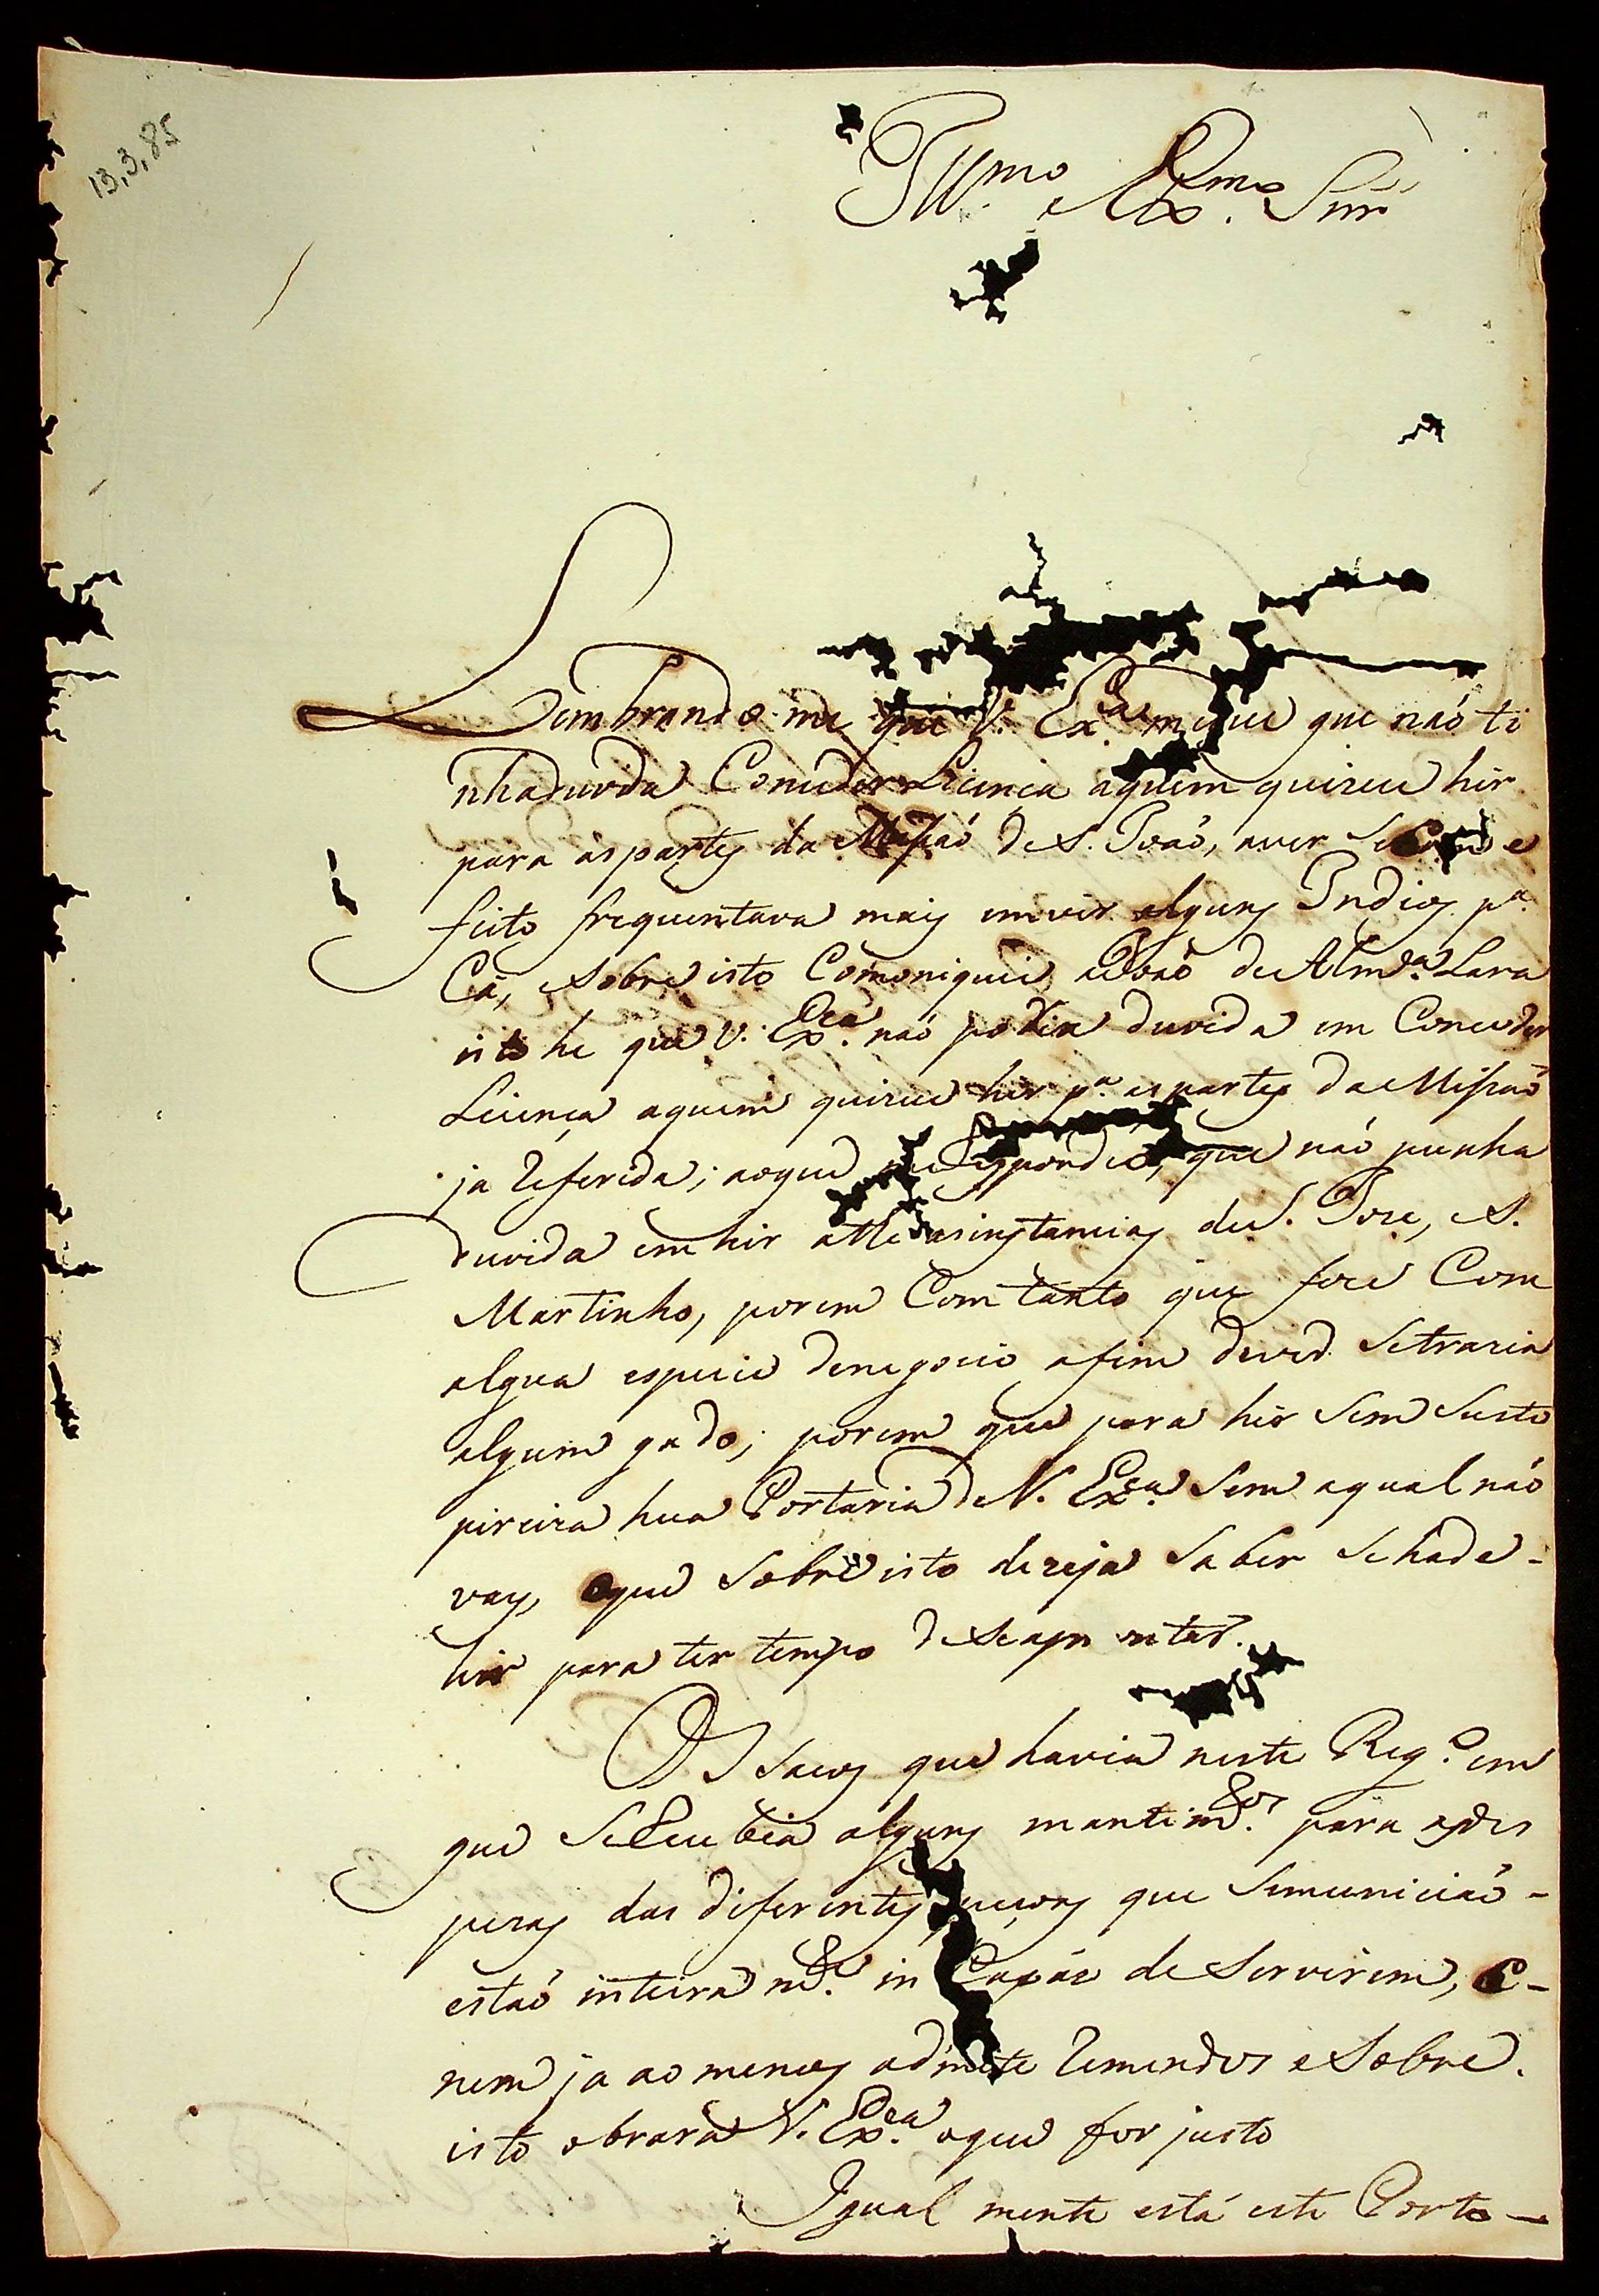 13,3,85
Illmo Exmo Snr
Lembrando me que V. Exa me que naó ti
nhaduvida Conceder Licença aquem quizece hir
para aspartes da Missaó de S. Joaó, aver Se
feito frequentava mais emvir alguns Indios pa
Cá, eSobre isto Comoniquei aJoaó de Almda Lara
isto he que V. Exca naó duvida em Conceder
Licença aquem quizece hir pa aspartes da Missaó
ja Referida; aoque me Respondeo, que naó punha
duvida em hir athe as instancias de S. Joze, e S.
Martinho, porem Com tanto que foce Com
algua especie denegocio afim de ver Setrazia
algum gado; porem que para hir Sem Susto
hua Portaria de V. Exca Sem aqual náo
vay, eque Sobre isto dezeja Saber Sehade-
hir para ter tempo de Se
Os Sacos que havia neste Rego em
que SeRecebia alguns mantimtos para asdes
pezas das diferentes que Semuniciaó-
estaó inteiramte in Capáz de Servirem, e-
nem ja ao menos admite Remendos eSobre
isto obrará V. Exca oque for justo
Igual mente está este Porto-